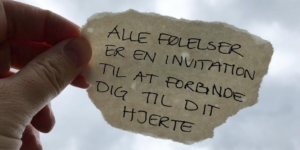 ALLE FØLELSER
ER EN INVITATION
TIL AT FORBINDE
DIG TIL DIT
HJERTE